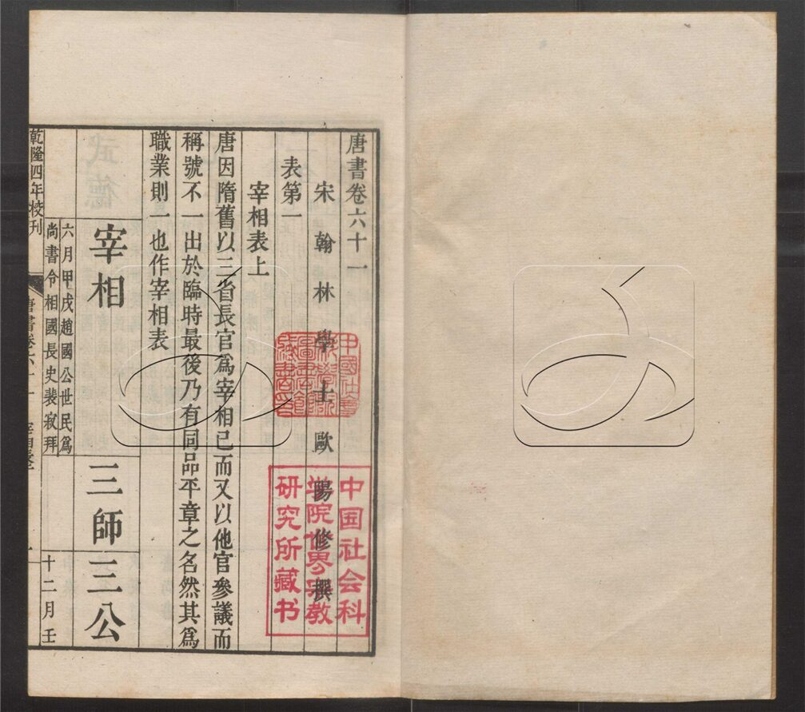 唐書卷六十一
宋翰林學士歐陽修撰
表第一
宰相表上
唐因隋舊以三省長官爲宰相已而又以他官參議而
稱號不一出於臨時最後乃有同品平章之名然其爲
職業則一也作宰相表
宰相
三師三公
六月甲戌趙國公世民爲
尚書令相國長史裴寂拜
十二月壬
乾隆四年校刊
唐書卷六十一
中国社会科
学院世界宗教
研究所藏书